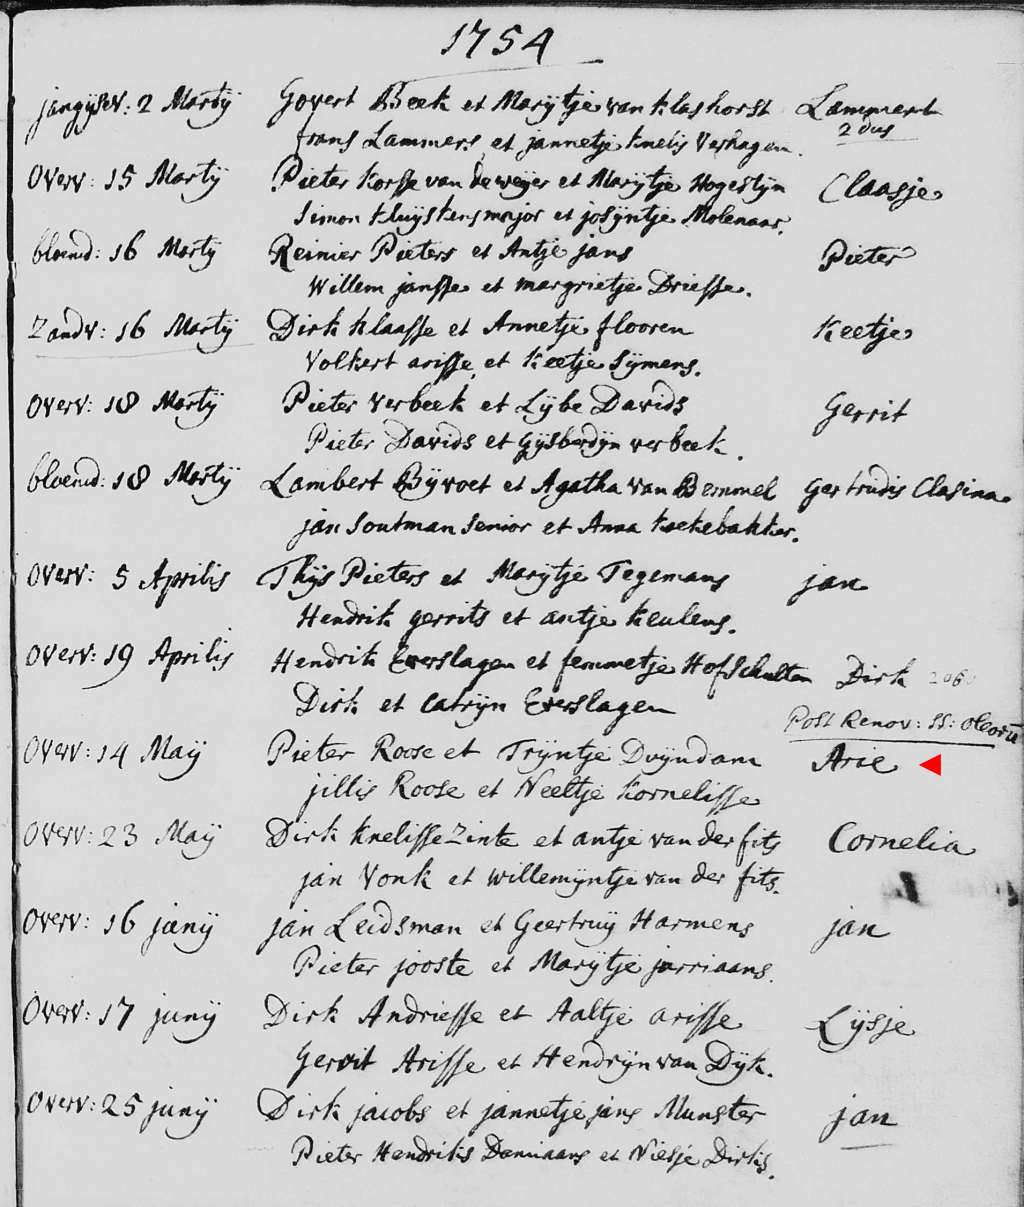 1754
jangijsv: 2 Martij Govert Beek et Marijtje van Klashorst Lammert
frans Lammers et jannetje knelis Verhagen. 2 dus
Overv: 15 Martij Pieter Korsse van de weijer et Marijtje Hogestijn Claasje
Simon Kluijskens major et josijntje Molenaar.
bloemd: 16 Martij Reinier Pieters et Antje jans Pieter
Willem jansse et margrietje Driesse.
Zandv: 16 Martij Dirk klaasse et Annetje flooren Keetje
Volkert arisse et Keetje Sijmens.
Overv: 18 Martij Pieter Verbeek et Lijbe Davids Gerrit
Pieter Davids et Gijsberdijn verbeek.
bloemd: 18 Martij Lambert Bijvoet et Agatha van Bemmel Gertrudis Clasina
jan Soutman Senior et Anna Koekebakker.
Overv: 5 Aprilis Thijs Pieters et Marijtje Tegemans jan
Hendrik gerrits et antje keulens.
Overv: 19 Aprilis Hendrik Everslagen et femmetje Hofschulten Dirk
Dirk et Catrijn Everslagen
Post Renov: SS: Oleorū
Overv: 14 Maij Pieter Roose et Trijntje Duijndam Arie
jillis Roose et Neeltje Kornelisse
Overv: 23 Maij Dirk Knelisse Zinte et antje van der fits Cornelia
jan Vonk et willemijntje van der fits.
Overv: 16 junij jan Leidsman et Geertruij Harmens jan
Pieter jooste et Marijtje jurriaans.
Overv: 17 junij Dirk Andriesse et Aaltje arisse Lijsje
Gerrit Arisse et Hendrijn van Dijk.
Overv: 25 junij Dirk jacobs et jannetje jans Munster jan
Pieter Hendriks Damiaans et Niesje Dirks.